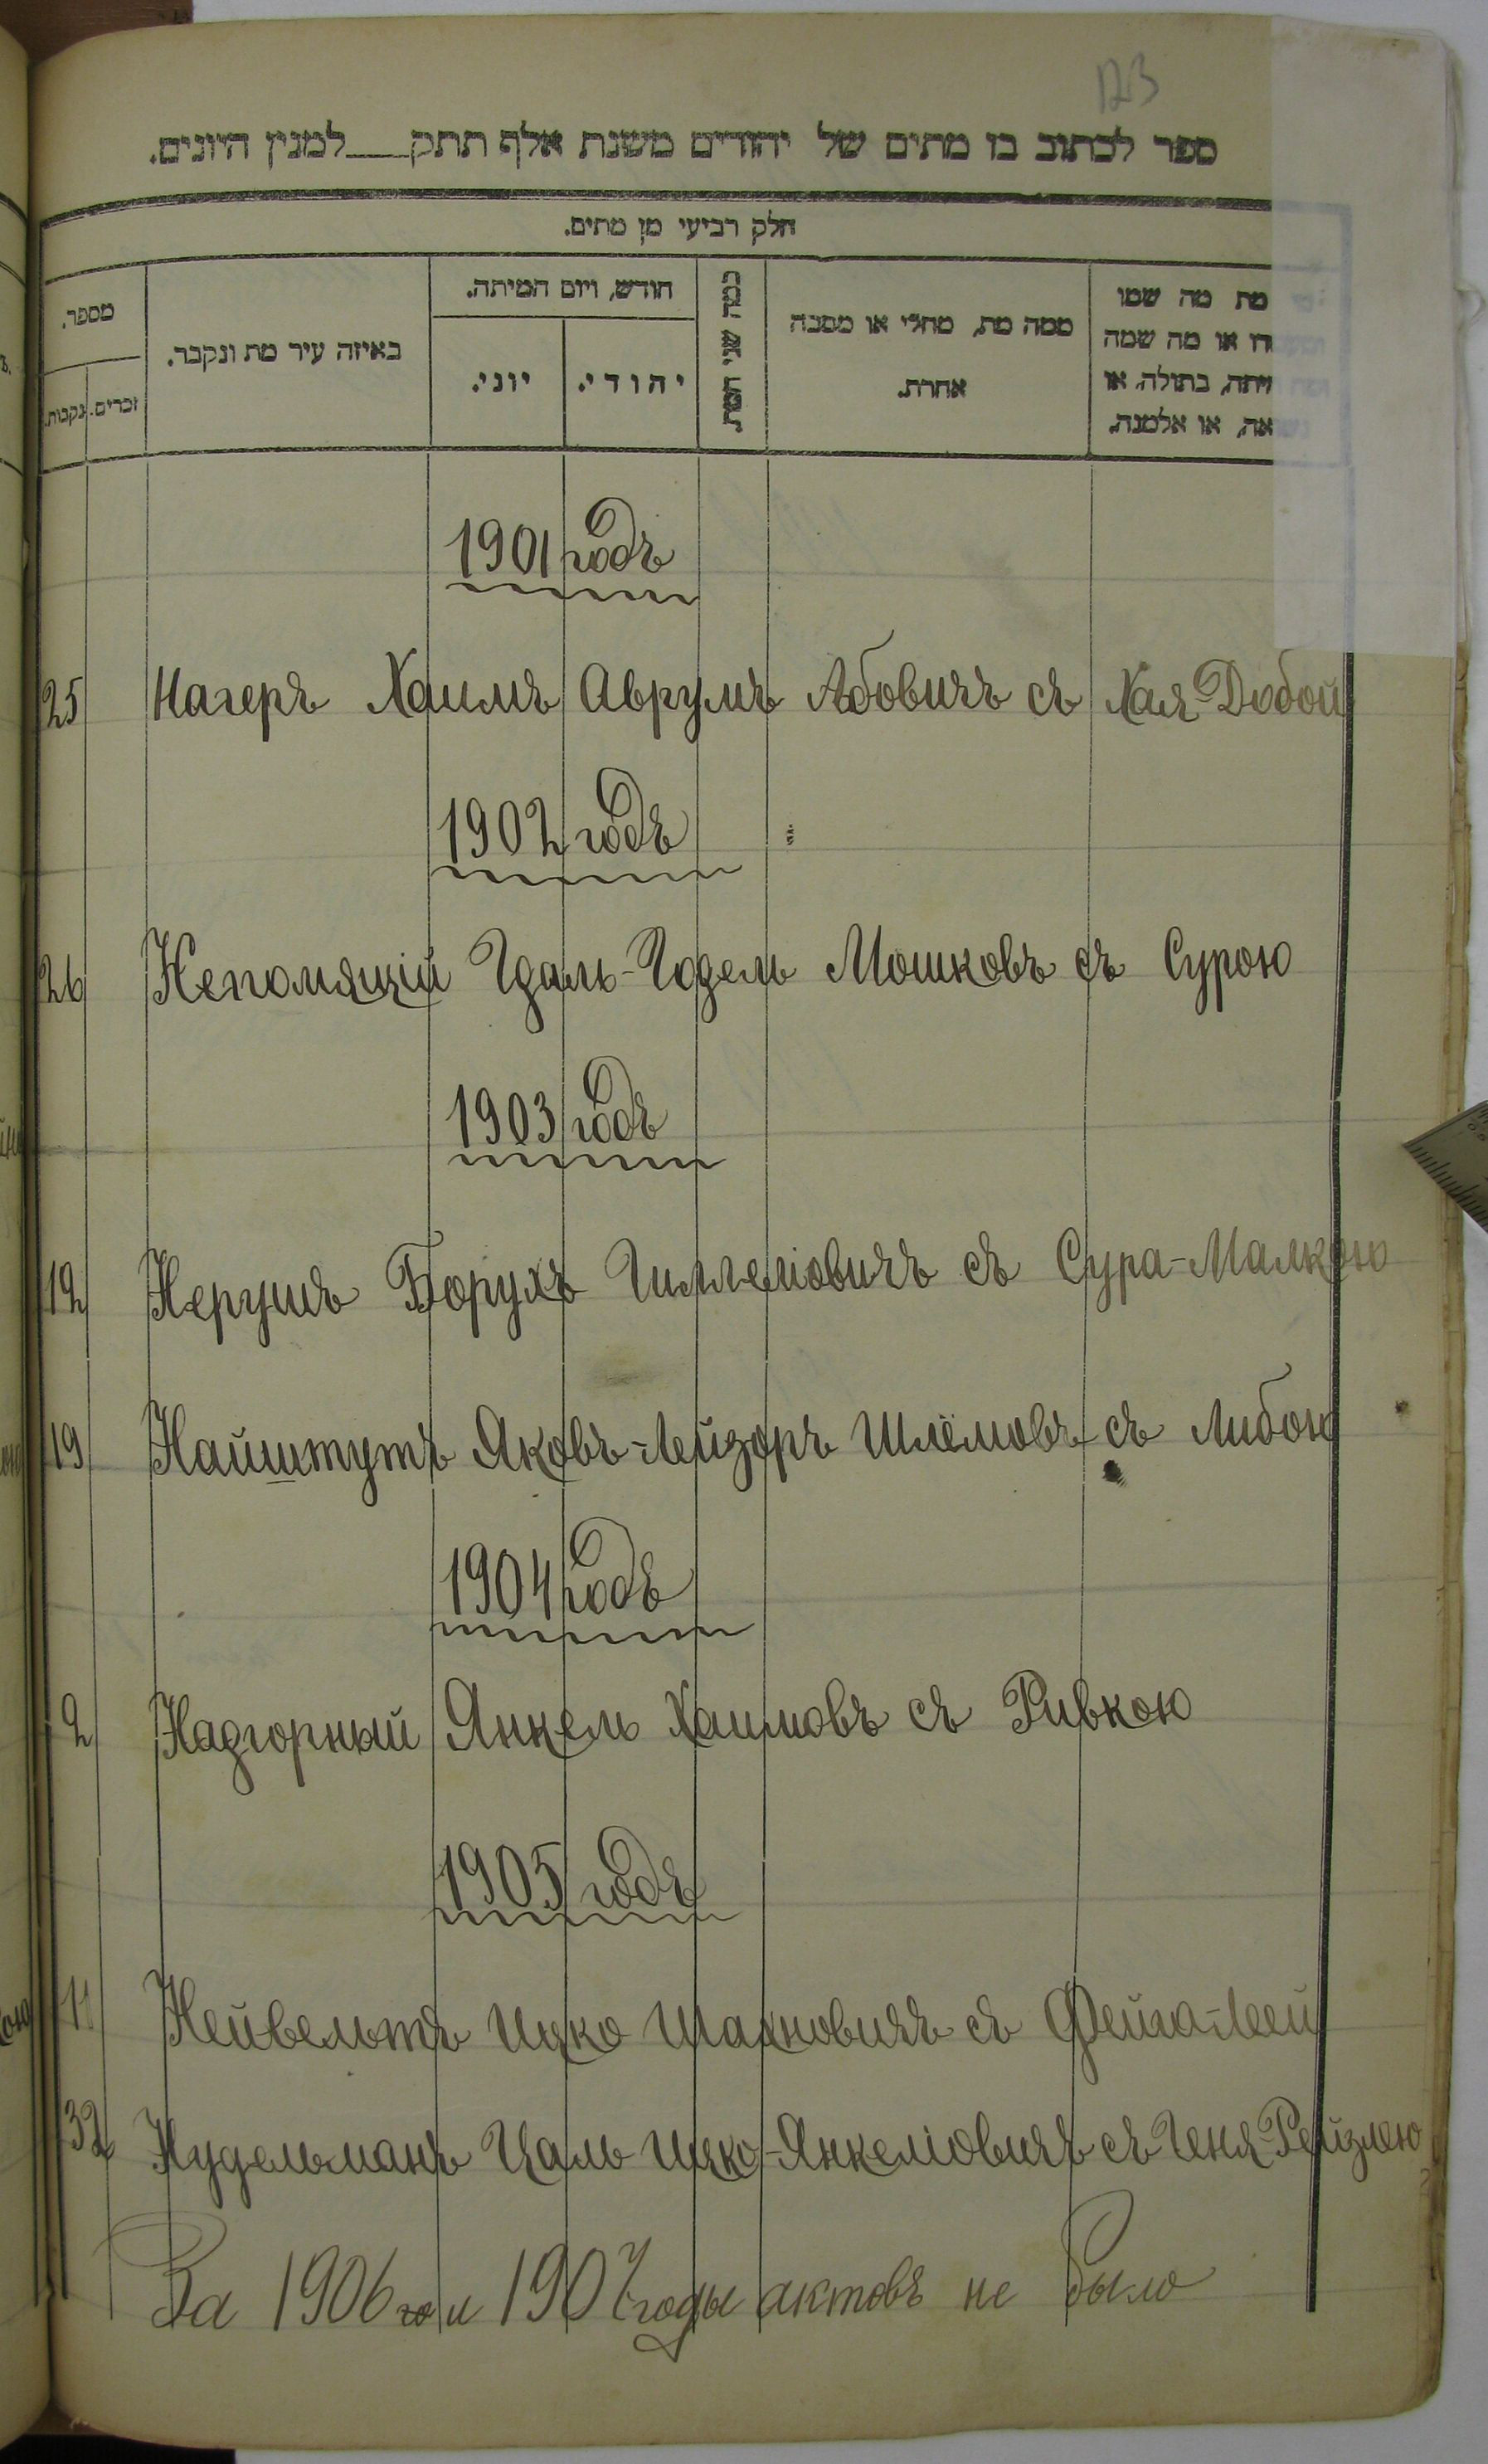 123
ספר לכתוב בו מתים של יהודים משנת אלף תתק___למנין היונים.
חלק רביעי מן מתים.
מספר.
זכרים. נקבות.
באיזה עיר מת ונקבר.
חודש, ויום המיתה.
יהודי. יוני.
כמה שני המת.
ממה מת, מחלי או מסבה
אחרת.
מת מה שמו
או מה שמה
בתולה, או
או אלמנה.
1901 годъ
25 Нагеръ Хаимъ Аврумъ Абовичъ съ Хая Добой
1902 годъ
26 Непомящій Гдаль-Годель Мошковъ съ Сурою
1903 годъ
12 Нерушъ Борухъ Гиллеліовичъ съ Сура-Малкою
19 Найштутъ Яковъ-Лейзоръ Шлемовъ съ Либою
1904 годъ
2 Надгорный Янкель Хаимовъ съ Ривкою
1905 годъ
11 Нейвельтъ Ицко Шахновичъ съ Фейга-Леей
32 Нудельманъ Цаль Ицко-Янкеліовичъ съ Геня-Рейзлею
За 1906 го и 1907 годы актовъ не было